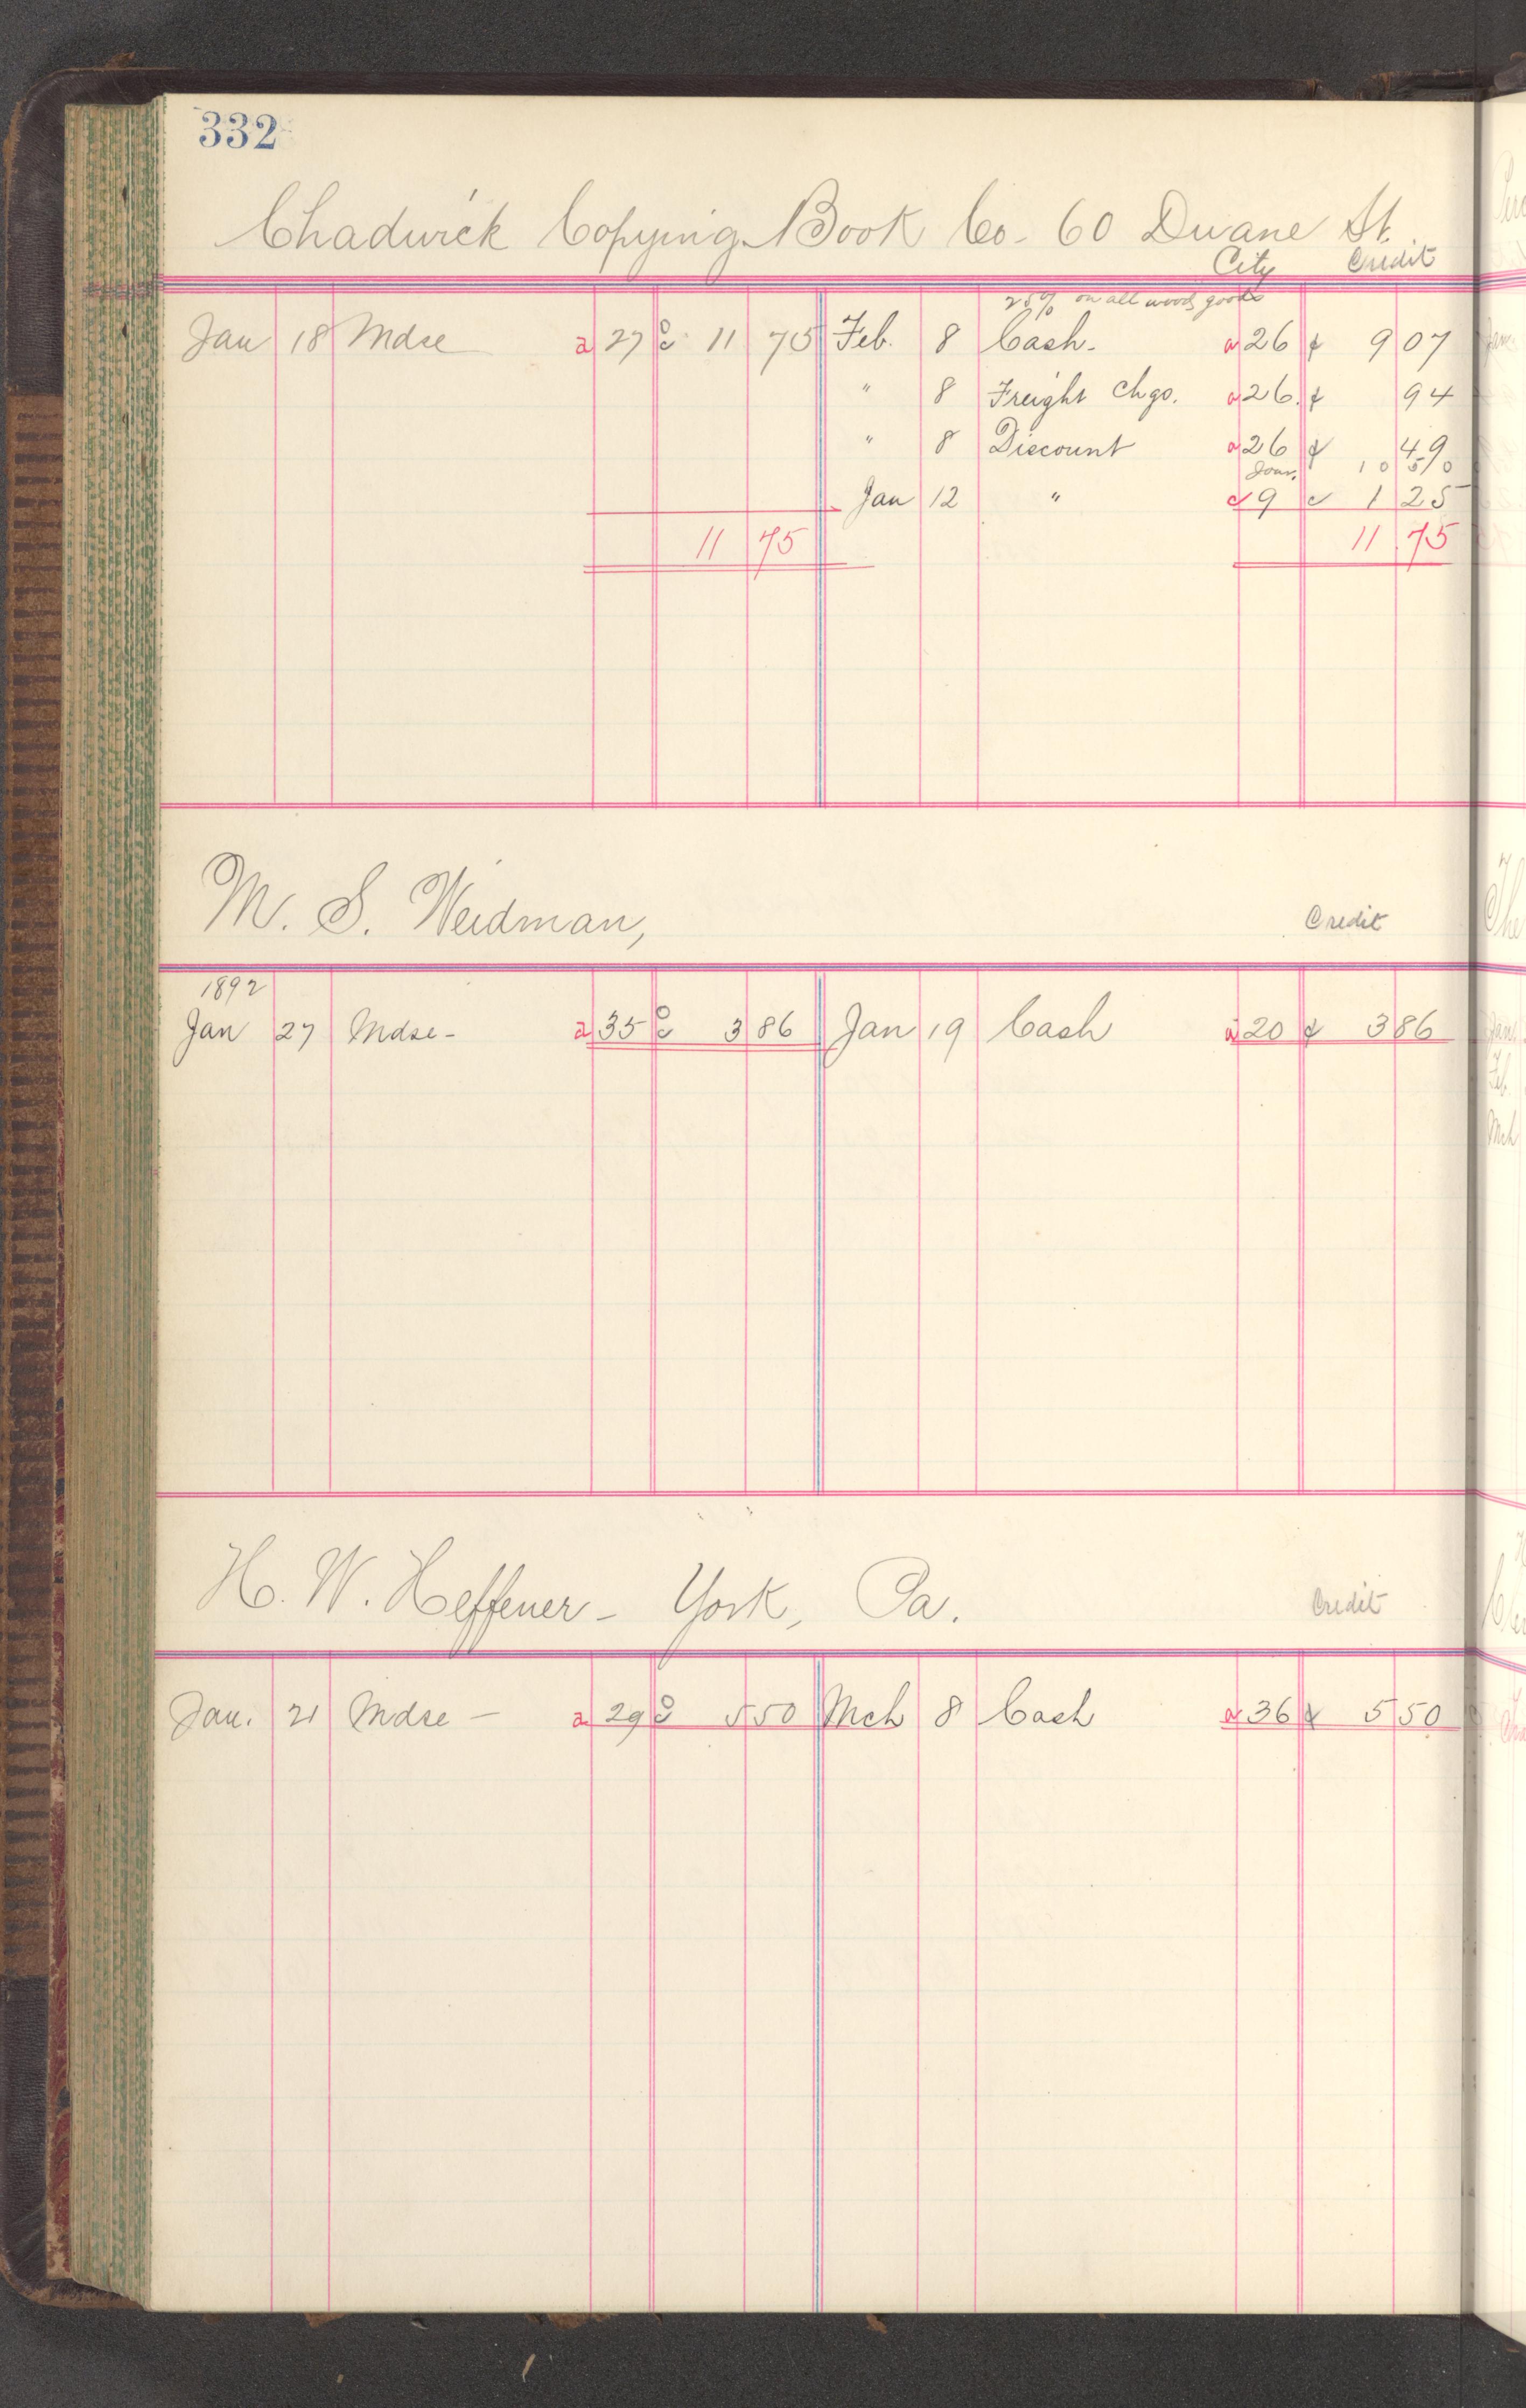 332
Chadwick Copying Book Co- 60 Duane St.
City Credit
25% on all wood goods
Jan 18 Mdse a 27 c 11 75 Feb. 8 Cash- a 26 ¢ 9 07
" 8 Freight Chgs. a 26. ¢ 94
" 8 Discount a 26 ¢ 49
Jour. 10 50
Jan 12 " c 9 c 1 25
11 75 11 75
M. S. Weidman,
Credit
1892
Jan 27 Mdse- a 35 c 3 86 Jan 19 Cash a 20 ¢ 3 86
H. W. Heffener- York, Pa.
Credit
Jan. 21 Mdse - a 29 c 5 50 Mch 8 Cash a 36 ¢ 5 50
The
Jan
Feb.
Mch